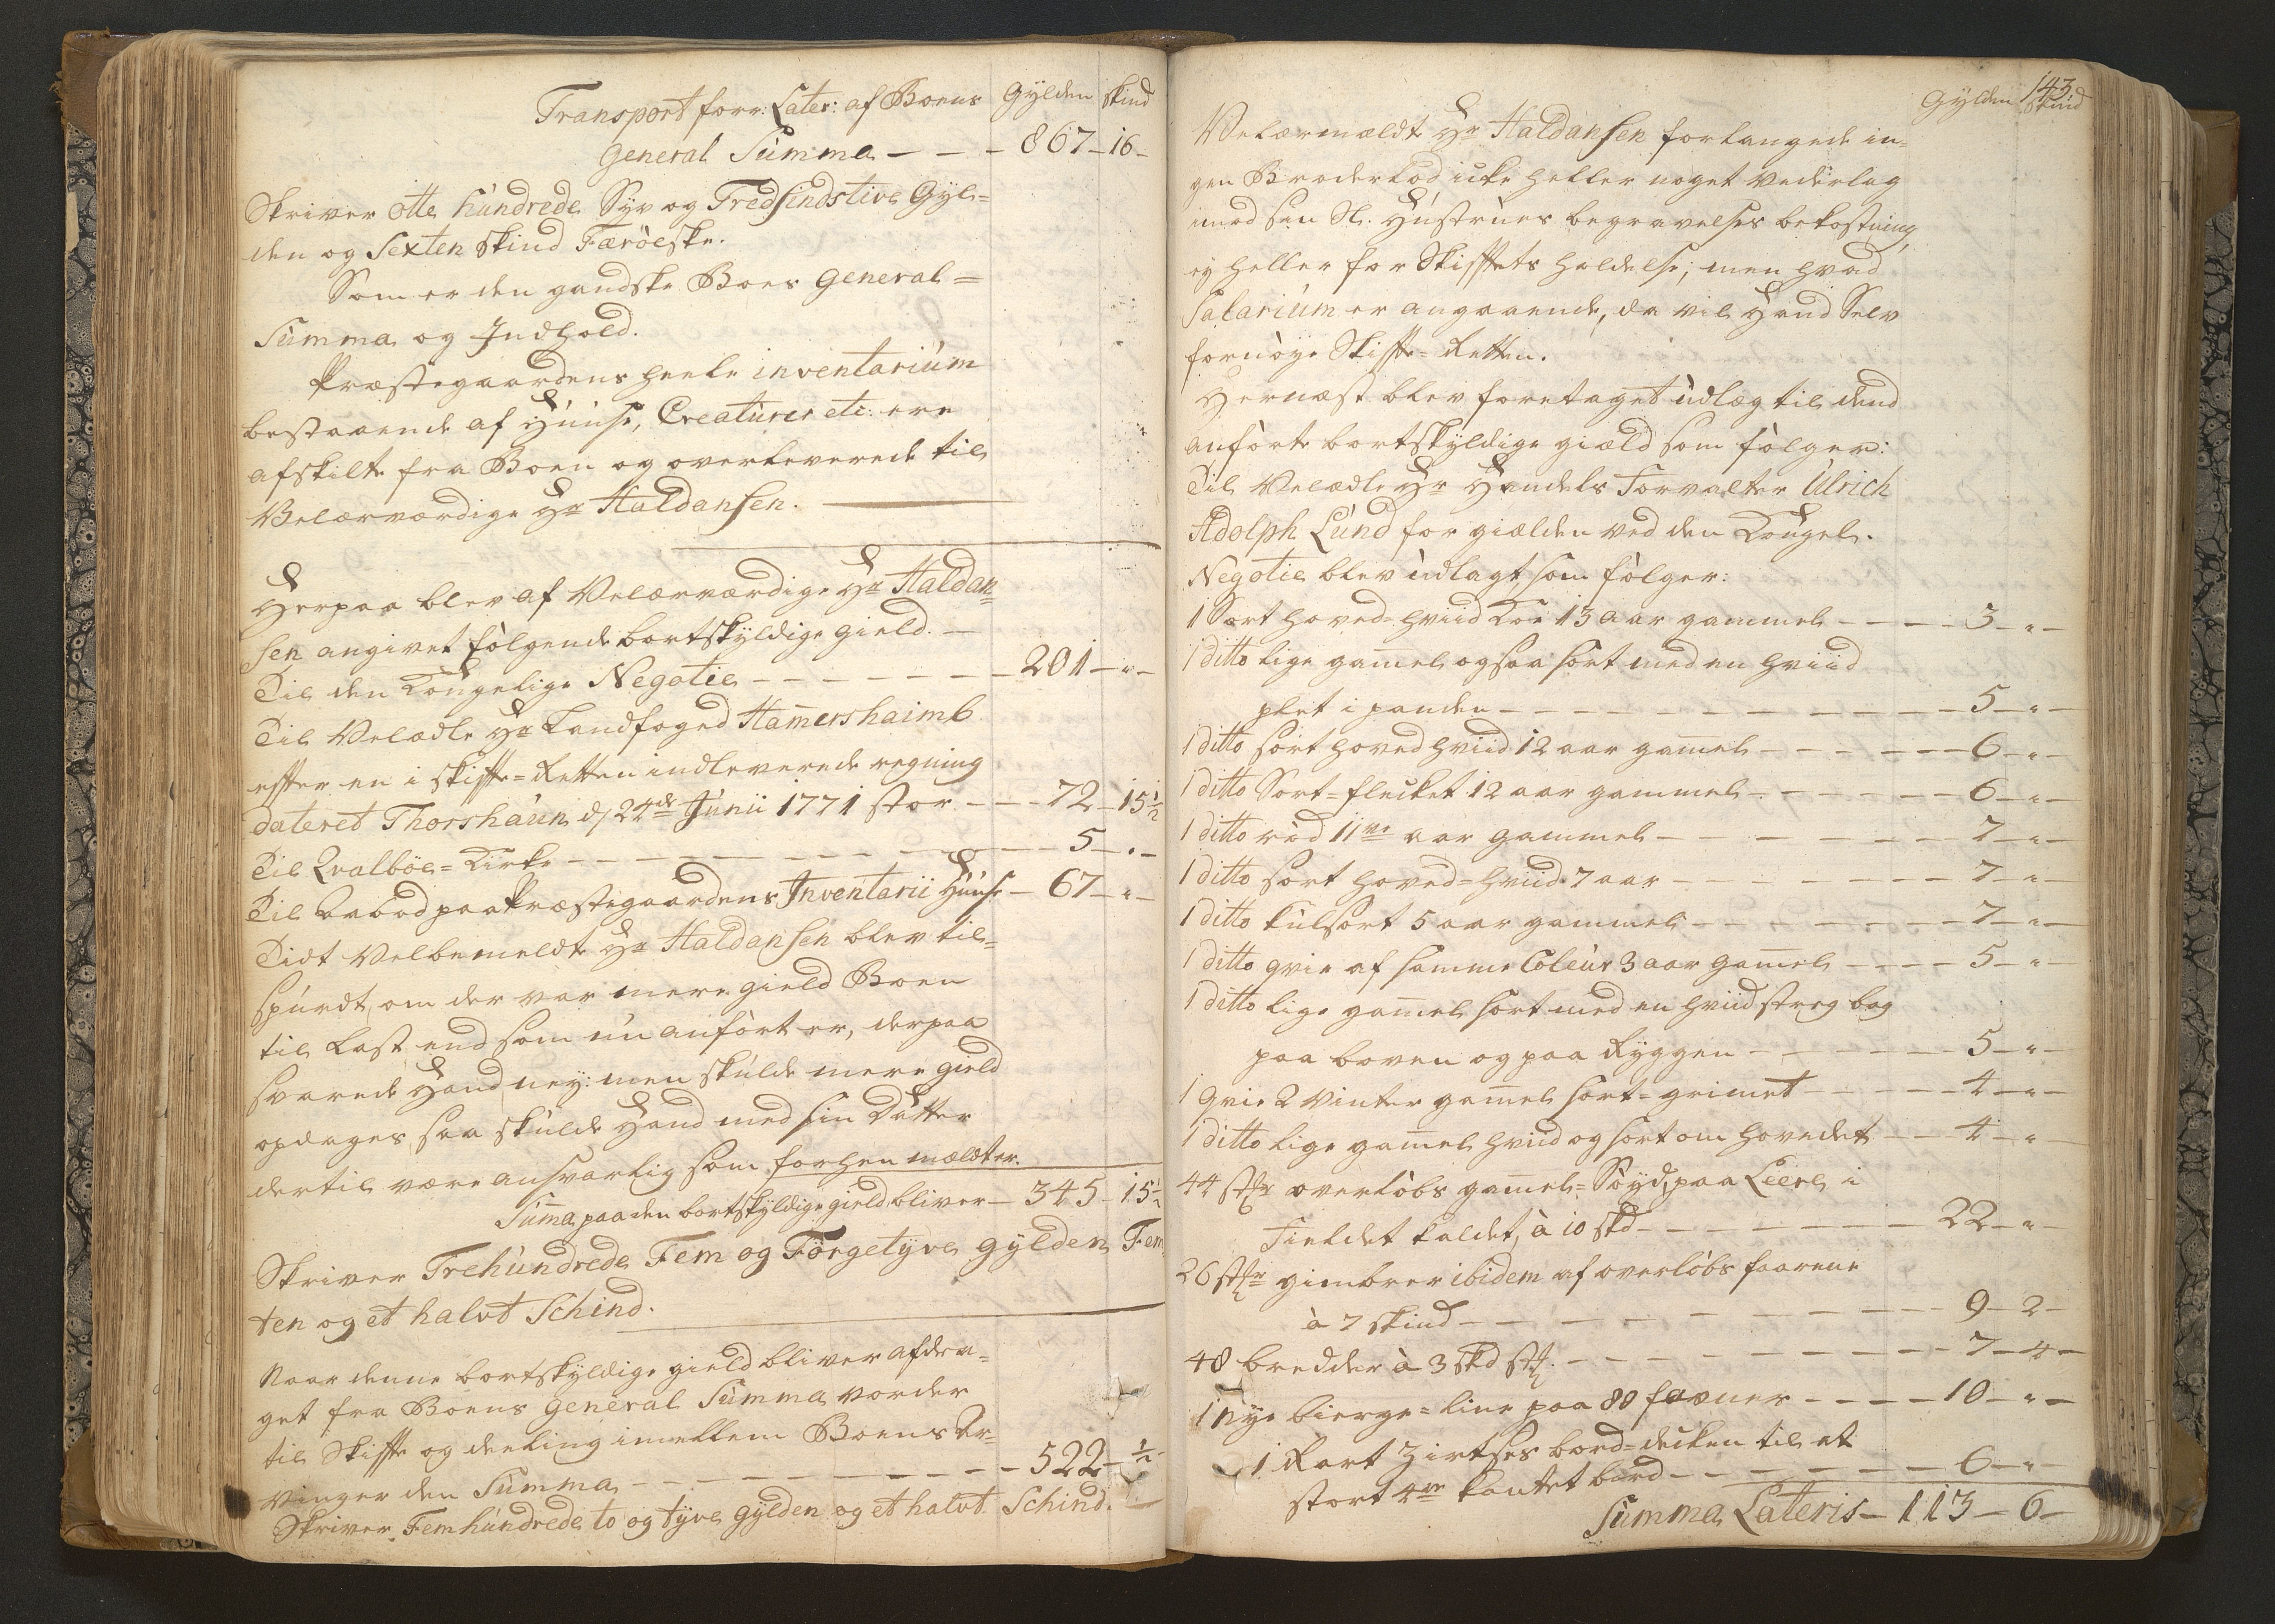 Transport forr: Later: af Boens Gylden skind
General Summa - - - 867 - 16 -
Skriver Otte hundrede Syv og Tredsindstive Gyl=
den og Sexten skind Færöeske.
Som er den gandske Boes General=
Summa og Indhold.
Præstegaardens heele inventarium
bestaaende af Huuse, Creaturer etc: ere
afskilte fra Boen og overleverede til
Velærværdige Hr Haldansen.
Herpaa blev af Velærværdige Hr Haldan=
sen angivet følgende bortskyldige gield. -
Til den Kongelige Negotie - - - - - - - 201 - " -
Til Velædle Hr Landfoged Ham̄ershaimb
efter en i skifte=Retten indleverede regning
dateret Thorshaun d/ 24de Junii 1771 stor - - - 72 - 15½
Til Qvalböe=Kirke - - - - - - - - - - 5 - " -
Til Aabod paa Præstegaardens Inventarii Huuse - 67 - " -
Tidt Velbemeldte Hr Haldansen blev til=
spurdt, om der var mere gield Boen
til Last end som nu anført er, derpaa
svarede Hand ney: men skulde mere gield
opdages saa skulde Hand med sin Datter
dertil være ansvarlig som forhen mældt er.
Sum̄a paa den bortskyldige gield bliver - 345 - 15½
Skriver Trehundrede Fem og Förgetyve gylden Fem
ten og et halvt Schind.
Naar denne bortskyldige gield bliver afdra=
get fra Boens General Summa vorder
til Skifte og deeling imellem Boens Ar=
vinger den Summa - - - - - - - - - 522 - ½ -
Skriver Femhundrede to og tyve gylden og et halvt Schind.
143
Gylden skind
Velærmældt Hr Haldansen forlangede in=
gen Broderlod icke heller noget Vederlag
imod sin Sl. Hustrues begravelses bekostning,
ey heller for Skiftets holdelse; men hvad
Salarium er angaaende, da vil Hand Selv
fornöye Skifte=Retten.
Hernæst blev foretaget udlæg til dend
anförte bortskyldige giæld som fölger:
Til Velædle Hr Handels Forvalter Ulrich
Adolph Lund for giælden ved den Kongel.
Negotie blev udlagt som fölger:
1 Sort hoved=hviid Koe 13 aar gammel - - - - 3 - " -
1 ditto lige gam̄el ogsaa sort med en hviid
plet i panden - - - - - - - - - - - 5 - " -
1 ditto sort hoved hviid 12 aar gam̄el - - - - - - 6 - " -
1 ditto Sort=flecket 12 aar gammel - - - - - - 6 - " -
1 ditto röd 11ve aar gammel - - - - - - - 7 - " -
1 ditto sort hoved=hviid 7 aar - - - - - - - 7 - " -
1 ditto kulsort 5 aar gammel - - - - - - - 7 - " -
1 ditto qvie af samme Coleur 3 aar gam̄el - - - - 5 - " -
1 ditto lige gam̄el sort med en hviid streg bag
paa boven og paa Ryggen - - - - - - 5 - " -
1 qvie 2 Vinter gam̄el sort=grimet - - - - - 4 - " -
1 ditto lige gam̄el hviid og sort om hovedet - - 4 - "
44 stkr overlöbs gam̄el=Söyd, paa Leere i
Fieldet kaldet, à 10 skd - - - - - - - - 22 - " -
26 stkr gimbrer ibidem af overlöbs faarene
à 7 skind - - - - - - - - - - - 9 - 2 -
48 bredder à 3 skd stk. - - - - - - - - - - 7 - 4 -
1 Nye bierge=line paa 80 faxner - - - - - 10 - " -
1 Rart Zirtses bord=decken til et
stort 4re kantet bord - - - - - - - - 6 - " -
Summa Lateris - 113 - 6 -